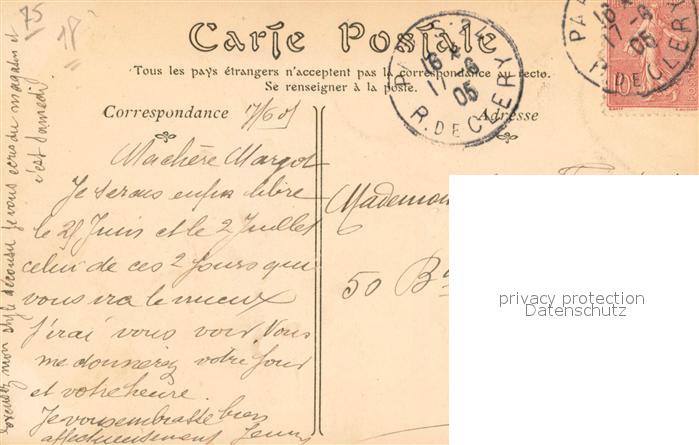 75
18
Carte Postale
Tous les pays étrangers n'acceptent pas la correspondance au recto.
Se renseigner à la poste.
Correspondance 17/6 05
Adresse
PARIS
18
17-6
05
R. DE CLERY
PA
18
17-6
05
R. DE CLERY
10
Ma chère Margot
Je serais enfin libre
le 25 Juin et le 2 Juillet
celui de ces 2 jours qui
vous ira le mieux
J'irai vous voir Vous
me donnerez votre jour
et votre heure.
Je vous embrasse bien
affectueusement
Mademoi
50 B
mon style décousu Je vous écris du magasin et
c'est Samedi
privacy protection
Datenschutz